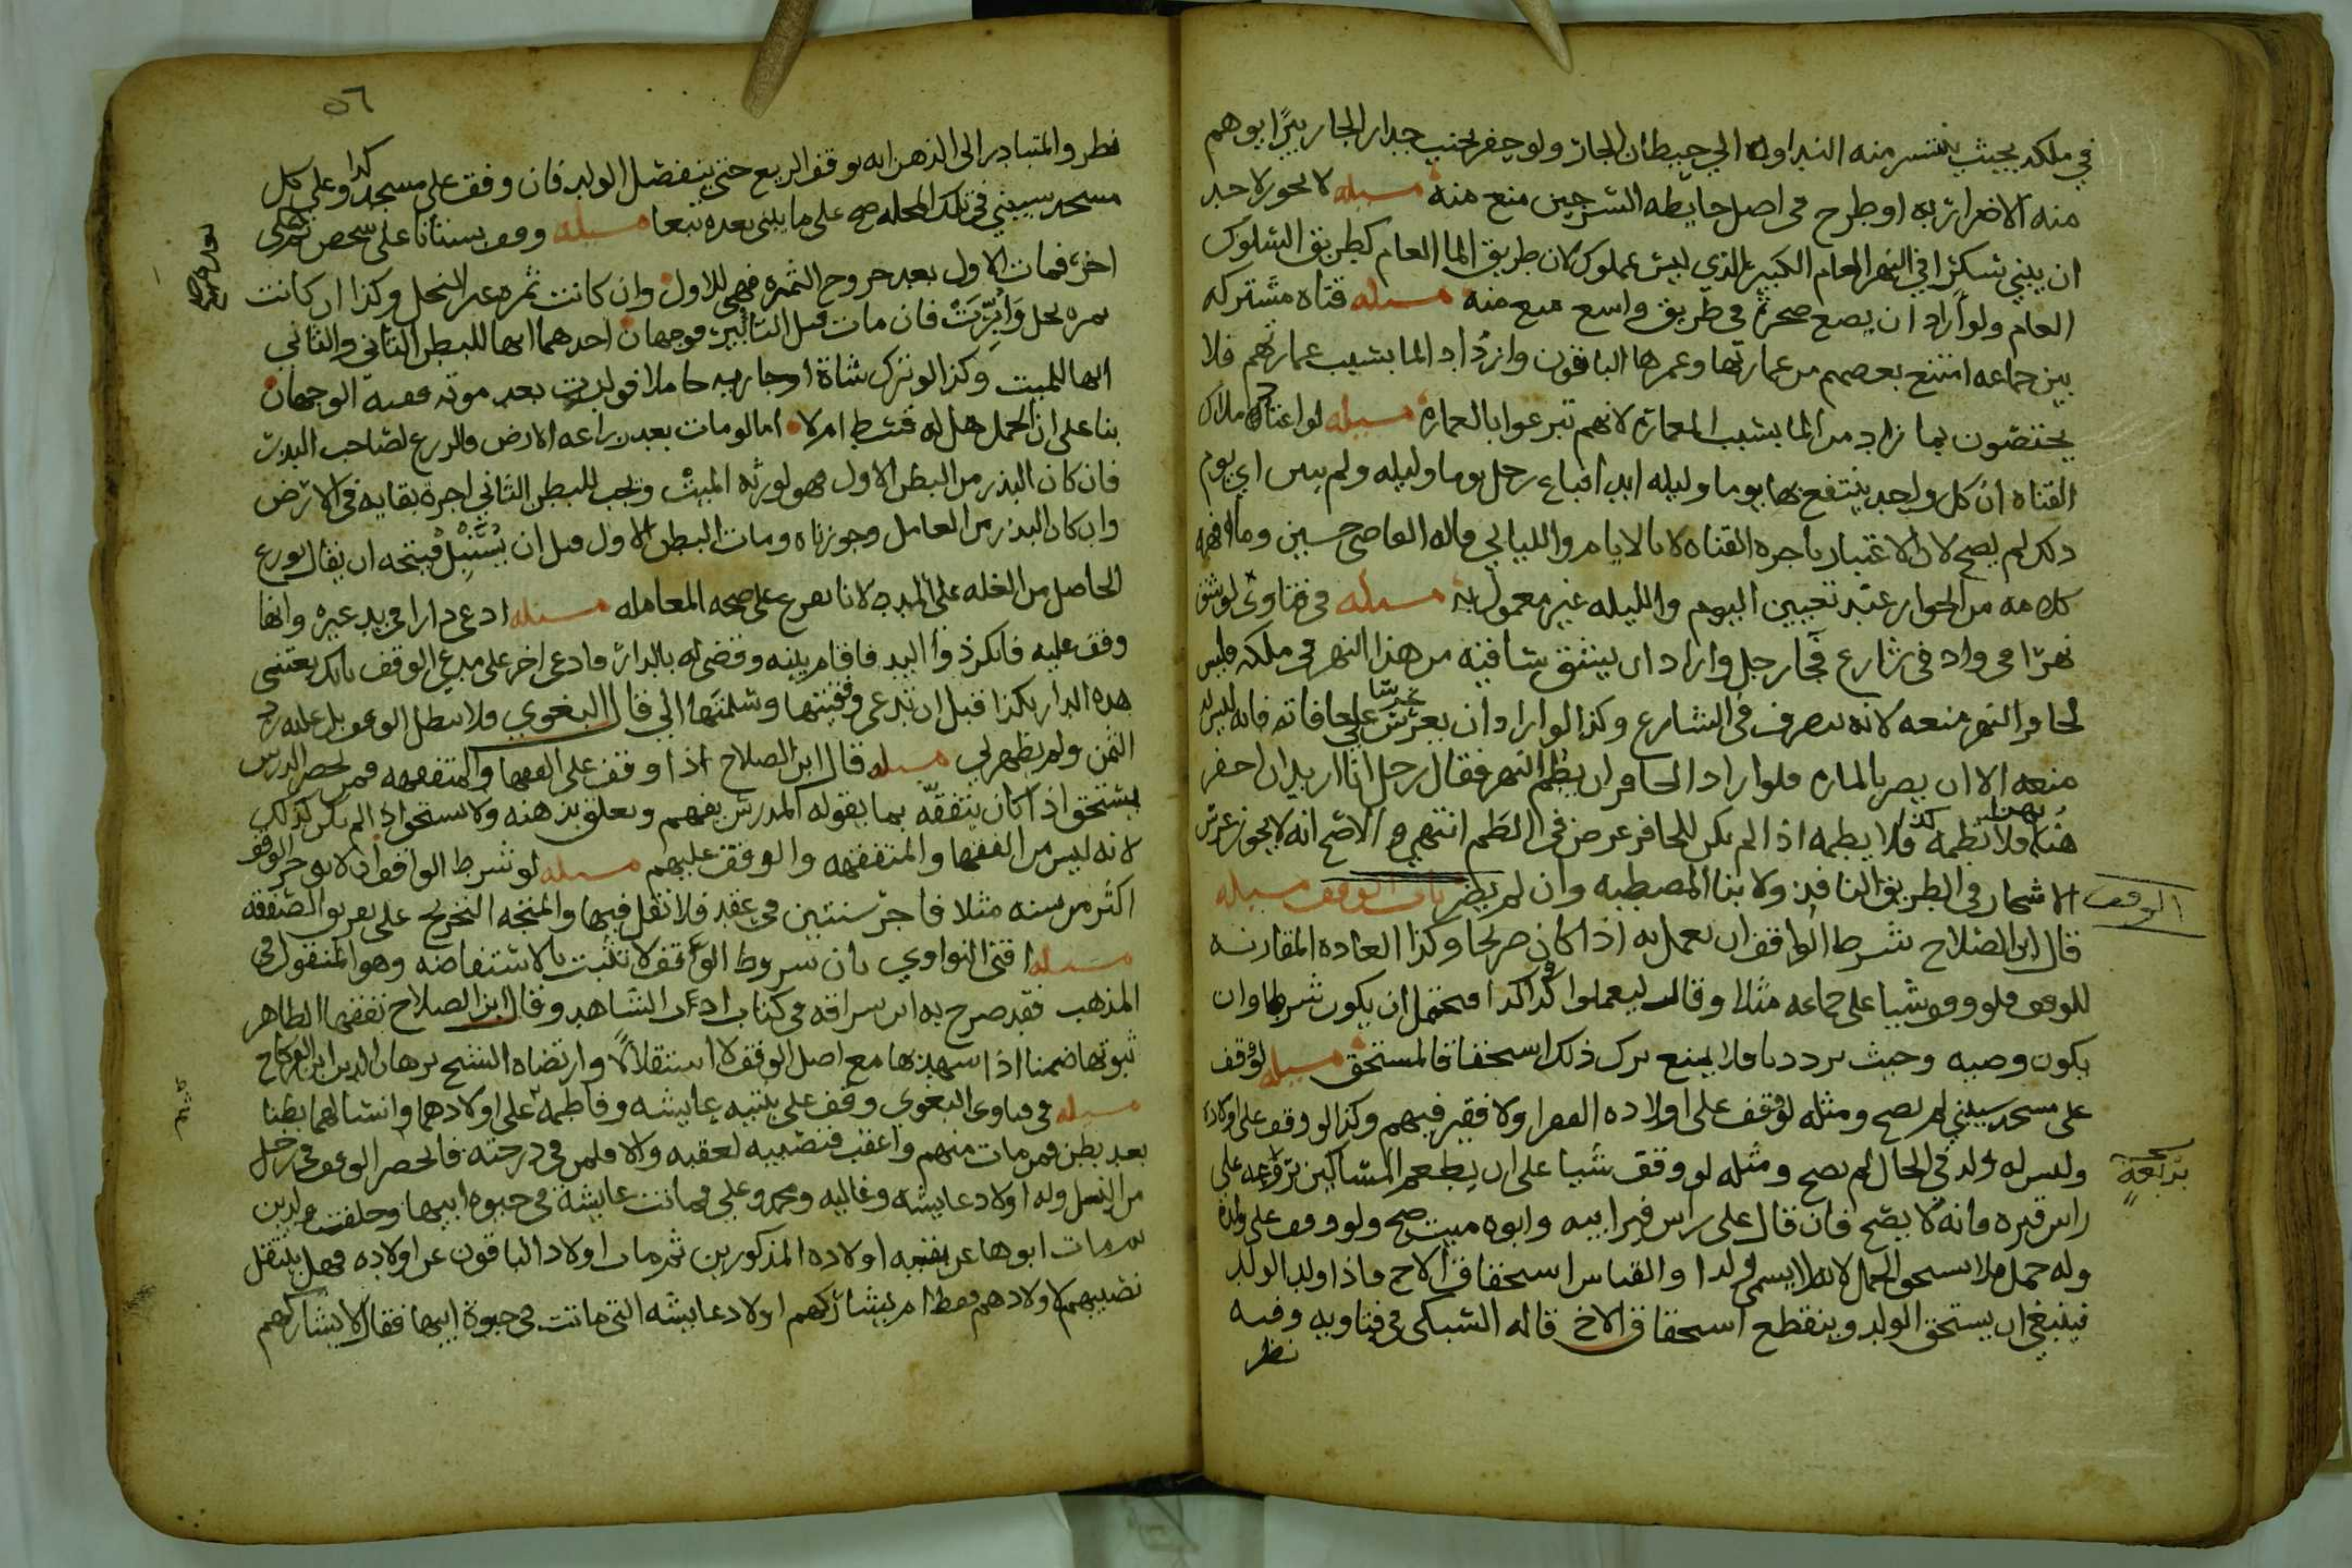 في ملكه بحيث ينتشر منه النداوه الي حيطان الجار ولو حفر بجنب جدار الجار بيرا يوهم
منه الاضرار به او طرح في اصل حايطه السرجين منع منه مسله لا يجوز لاحد
ان يبني سكرا في النهر العام الكبير الذي ليس بمملوك لان طريق الما العام كطريق السلوك
العام ولو اراد ان يضع صخرة في طريق واسع منع منه مسله قناه مشتركه
بين جماعه امتنع بعضهم من عمارتها وعمرها الباقون وازداد الما بسبب عمارتهم فلا
يختصون بما زاد من الما بسبب العمارة لانهم تبرعوا بالعمارة مسله لو اعتاد ملاك
القناه ان كل واحد ينتفع بها يوما وليله ابدا فباع رجل يوما وليله ولم يبين اي يوم
ذلك لم يصح لان الاعتبار باجره القناه لا بالايام والليالي قاله القاضي حسين وما افهمه
كلامه من الجواز عند تعيين اليوم والليله غير معمول به مسله في فتاوى لو شق
نهرا في واد في شارع فجا رجل واراد ان يبثق ساقيه من هذا النهر في ملكه فليس
لحافر النهر منعه لانه تصرف في الشارع وكذا لو اراد ان يغرس غرسا علي حافاته فانه ليس له
منعه الا ان يضر بالماره فلو اراد الحافر ان يطم النهر فقال رجل انا اريد ان احفر
هنا نهرا فلا تطمه فلا يطمه اذا لم يكن للحافر غرض في الطم انتهى والاصح انه لا يجوز غرس
الاشجار في الطريق النافذ ولا بنا المصطبه وان لم يضر باب الوقف مسله
الوقف
قال ابن الصلاح شرط الواقف ان يعمل به اذا كان صريحا وكذا العاده المقارنه
للوقف فلو وقف شيا على جماعه مثلا وقال ليعملوا كذا وكذا فيحتمل ان يكون شرطا وان
يكون وصيه وحيث ترددنا فلا يمنع ترك ذلك استحقاق المستحق مسله لو وقف
على مسجد سيبني لم يصح ومثله لو وقف على اولاده الفقرا ولا فقير فيهم وكذا لو وقف على اولاده
وليس له ولد في الحال لم يصح ومثله لو وقف شيا على ان يطعم المساكين من ريعه على
بريعه
راس قبره فانه لا يصح فان قال على راس قبر ابيه وابوه ميت صح ولو وقف على ولده
وله حمل فلا يستحق الحمل لانه لا يسمى ولدا والقياس استحقاق الاخ فاذا ولد الولد
فينبغي ان يستحق الولد وينقطع استحقاق الاخ قاله السبكي في فتاويه وفيه
نظر
٥٦
نظر والمتبادر الى الذهن انه يوقف الريع حتى ينفصل الولد فان وقف على مسجد كذا وعلى كل
مسجد سيبني في تلك المحله صح على ما يبنى بعده تبعا مسله وقف بستانا على شخص ثم على
اخر فمات الاول بعد خروج الثمره فهي للاول وان كانت ثمره غير النخل وكذا ان كانت
ثمره نخل وابرت فان مات قبل التابير فوجهان احدهما انها للبطن الثاني والثاني
انها للميت وكذا لو ترك شاة او جاريه حاملا فولدت بعد موته ففيه الوجهان
بنا على ان الحمل هل له قسط ام لا اما لو مات بعد زراعه الارض فالزرع لصاحب البذر
فان كان البذر من البطن الاول فهو لورثه الميت ويجب للبطن الثاني اجرة بقايه في الارض
وان كان البذر من العامل وجوزناه ومات البطن الاول قبل ان يسنبل فيتجه ان يقال يوزع
الحاصل من الغله على المده لانا نفرع على صحه المعامله مسله ادعى دارا في يد غيره وانها
وقف عليه فانكر ذوا اليد فاقام بينه وقضي له بالدار فادعى اخر على مدعي الوقف بانك بعتني
هذه الدار بكذا قبل ان تدعى وقفيتها وسلمتها الي قال البغوي فلا يبطل الوقف بل عليه رد
الثمن ولم يظهر لي مسله قال ابن الصلاح اذا وقف على الفقها والمتفقهه فمن يحضر الدرس
يستحق اذا كان يتفقه بما يقوله المدرس يفهم ويعلق بذهنه ولا يستحق اذا لم يكن كذلك
لانه ليس من الفقها والمتفقهه والوقف عليهم مسله لو شرط الواقف ان لا يوجر الوقف
اكثر من سنه مثلا فاجر سنتين في عقد فلا نقل فيها والمتجه التخريج على تفريق الصفقه
مسله افتى النواوي بان شروط الواقف لا تثبت بالاستفاضه وهو المنقول في
المذهب فقد صرح به ابن سراقه في كتاب ادب الشاهد وقال ابن الصلاح تفقها الظاهر
ثبوتها ضمنا اذا شهد بها مع اصل الوقف لا استقلالا وارتضاه الشيخ برهان الدين ابن الفركاح
مسله في فتاوى البغوي وقف على بنتيه عايشه وفاطمه على اولادهما وانسالهما بطنا
بعد بطن فمن مات منهم واعقب فنصيبه لعقبه والا فلمن في درجته فانحصر الوقف في رجل
من النسل وله اولاد عايشه وغاليه ومحمد وعلي فماتت عايشة في حيوة ابيها وخلفت ولدين
ثم مات ابوها عن بقيه اولاده المذكورين ثم مات اولاد الباقون عن اولاده فهل ينتقل
نصيبهم لاولادهم فقط ام يشاركهم اولاد عايشه التي ماتت في حيوة ابيها فقال لا يشاركهم